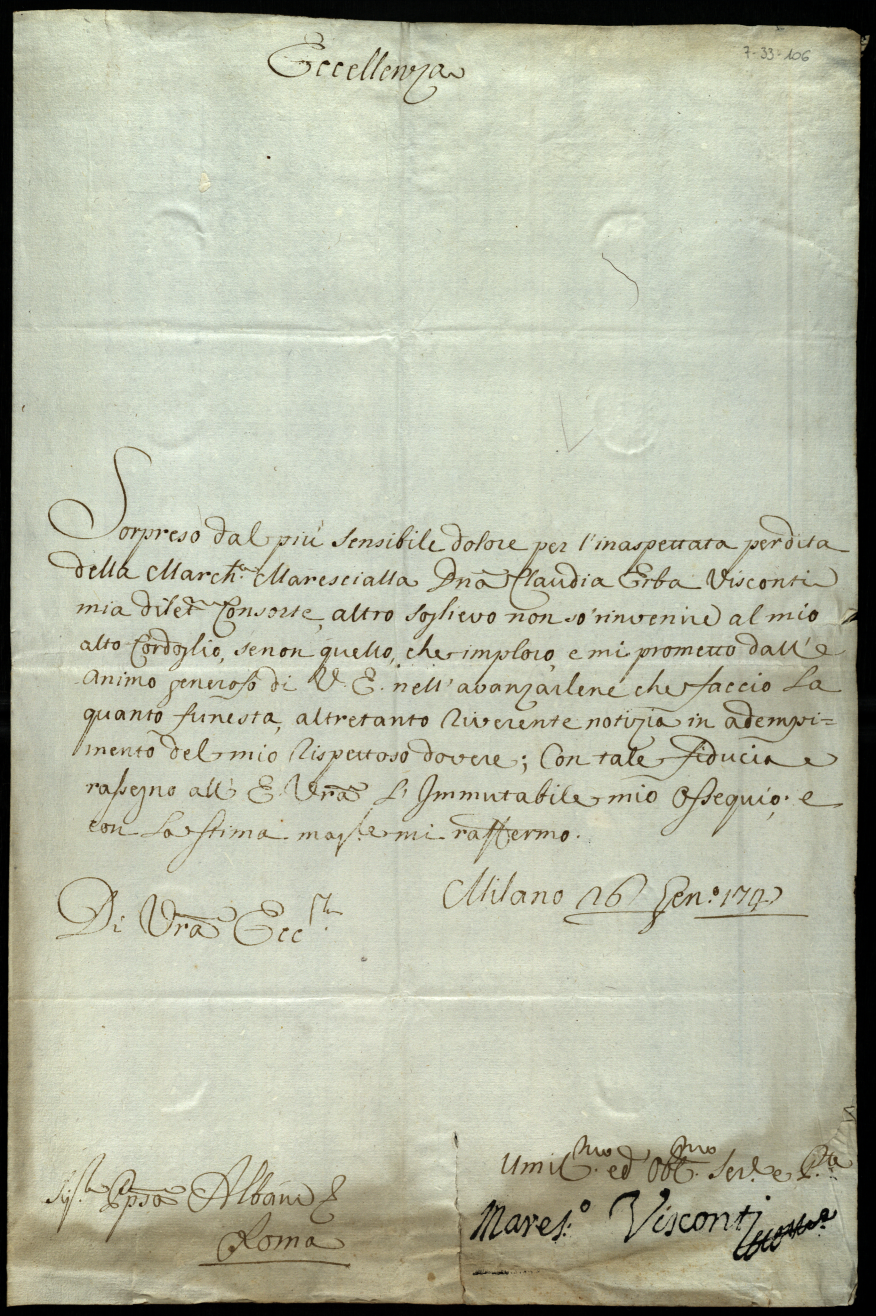 7-33-106
Eccellenza
Sorpreso dal più sensibile dolore per l'inaspettata perdita
della March.a Marescialla Dnã Claudia Erba Visconti
mia dilet.a Consorte, altro soglievo non so' rinvenire al mio
alto Cordoglio, senon quello, che imploro, e mi prometto dall'
Animo generoso di V. E. nell'avanzarlene che faccio La
quanto funesta, altretanto riverente notizia in adempi=
mento del mio rispettoso dovere; Con tale fiducia
rassegno all' E. Vrã L'Immutabile mio Ossequio; e
con La stima mag.re mi raffermo.
Milano 26 Gen.o
Di Vrã Ecc.
Umil.mo ed Obl.mo Ser.e e
Sig.ra Ppsa Albani
Mares.o Visconti
Roma